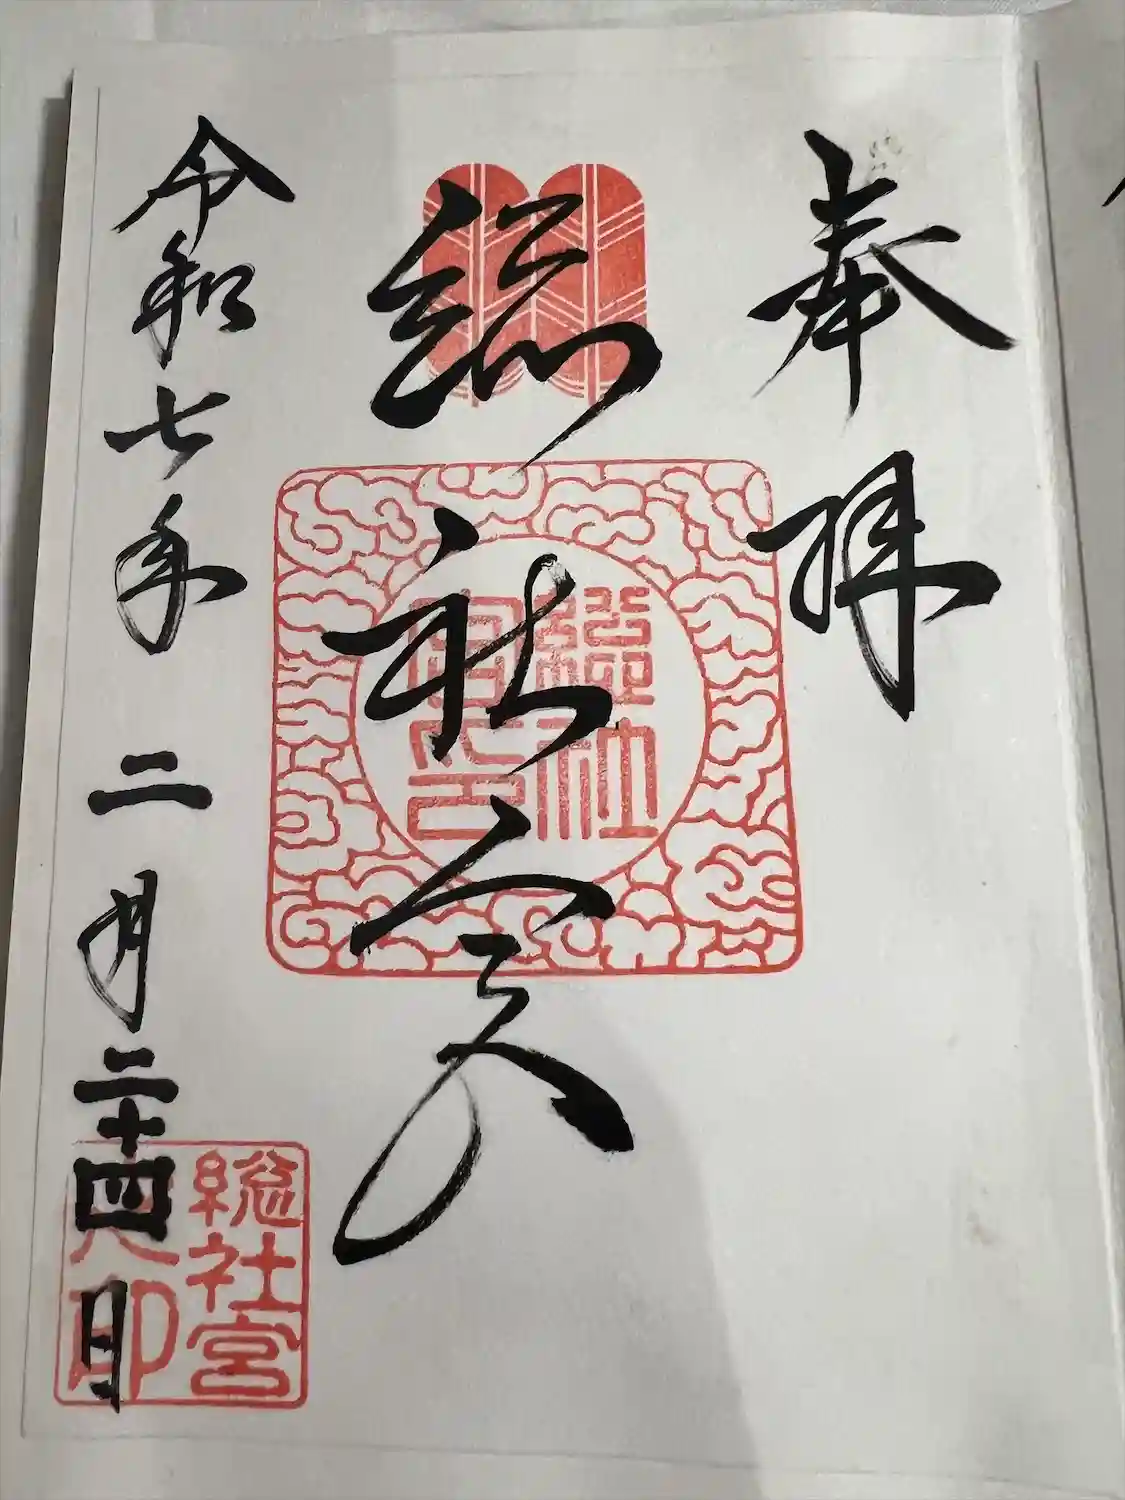 奉拝
総社宮
總社
宮印
令和七年二月二十四日
総社宮
印